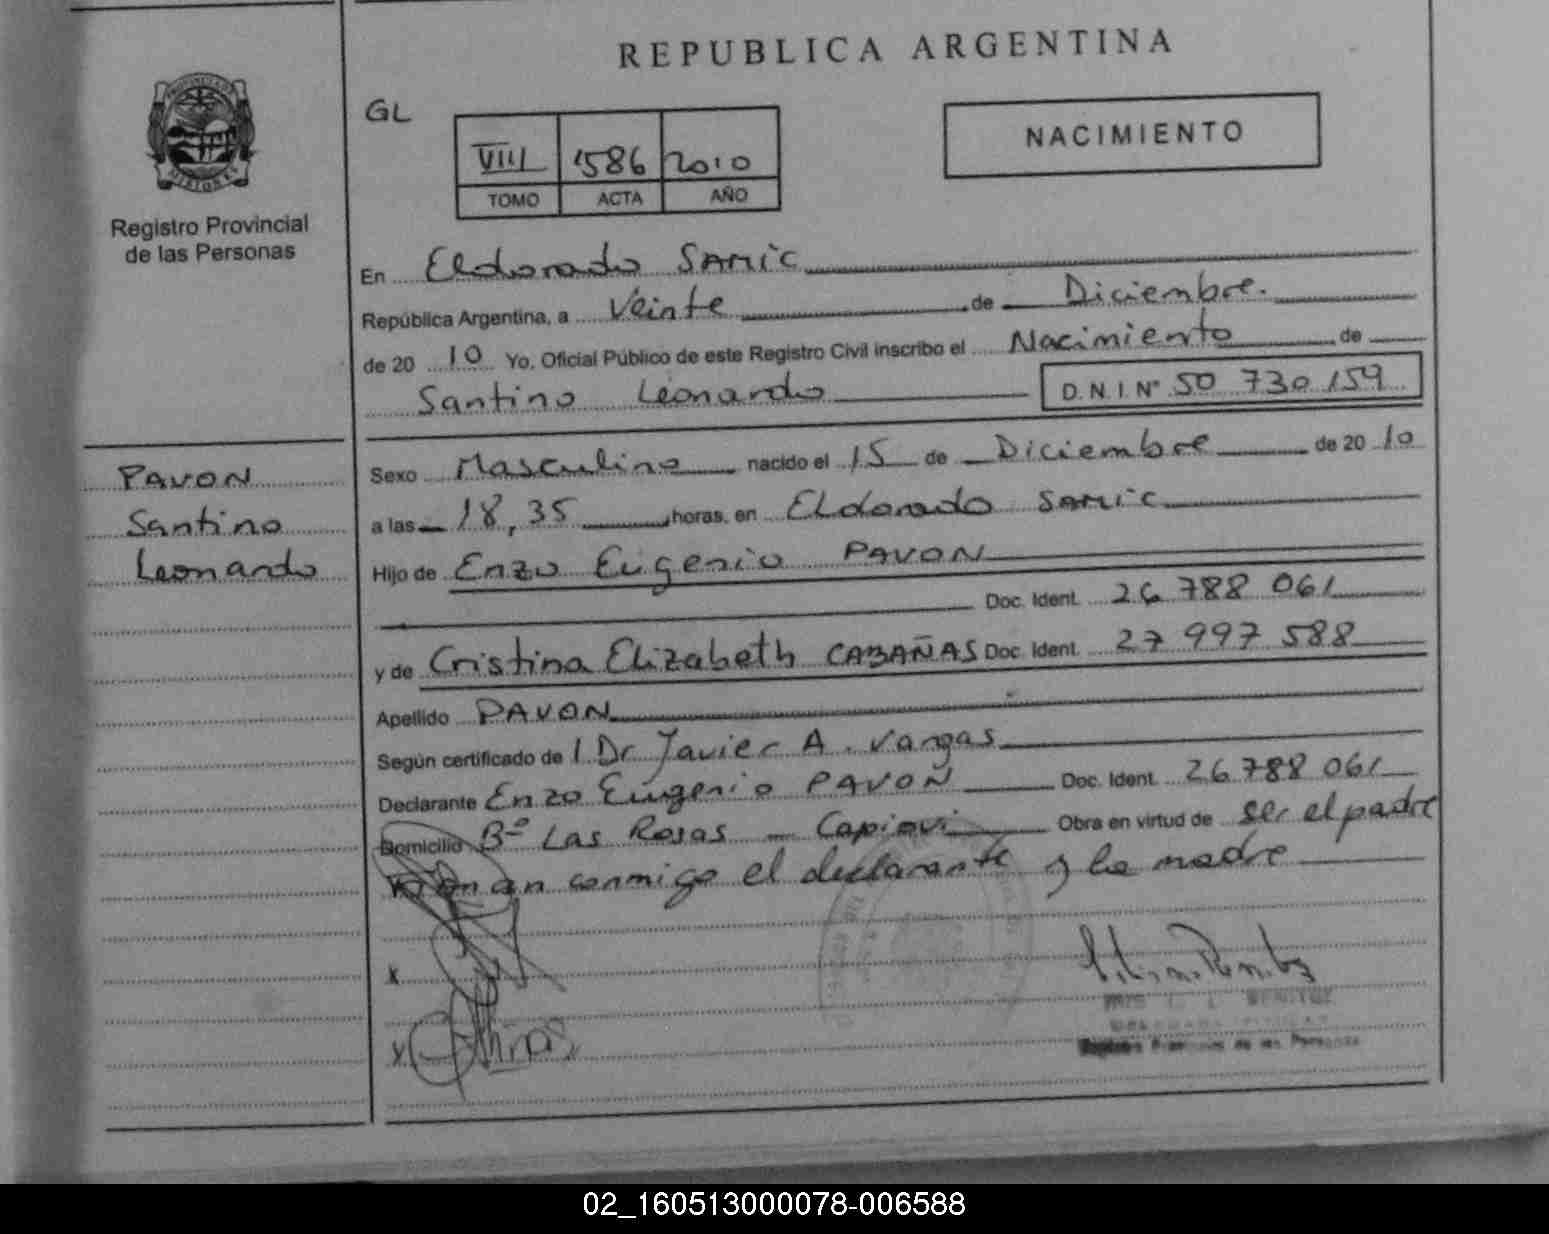 REPUBLICA ARGENTINA
PROVINCIA DE
MISIONES
Registro Provincial
de las Personas
GL
VIII 1586 2010
TOMO ACTA AÑO
NACIMIENTO
En Eldorado SAMIC
República Argentina, a Veinte de Diciembre.
de 20 10 Yo, Oficial Público de este Registro Civil inscribo el Nacimiento de
Santino Leonardo D.N.I.Nº 50 730 159
PAVON
Santino
Leonardo
Sexo Masculino nacido el 15 de Diciembre de 20 10
a las 18,35 horas, en Eldorado SAMIC
Hijo de Enzo Eugenio PAVON
Doc. Ident. 26 788 061
y de Cristina Elizabeth CABAÑAS Doc. Ident. 27 997 588
Apellido PAVON
Según certificado de l Dr Javier A. Vargas
Declarante Enzo Eugenio PAVON Doc. Ident. 26 788 061
Domicilio Bº Las Rosas - Capiovi Obra en virtud de ser el padre
Firman conmigo el declarante y la madre
x
x
BENITEZ
Registro Provincial de las Personas
02_160513000078-006588